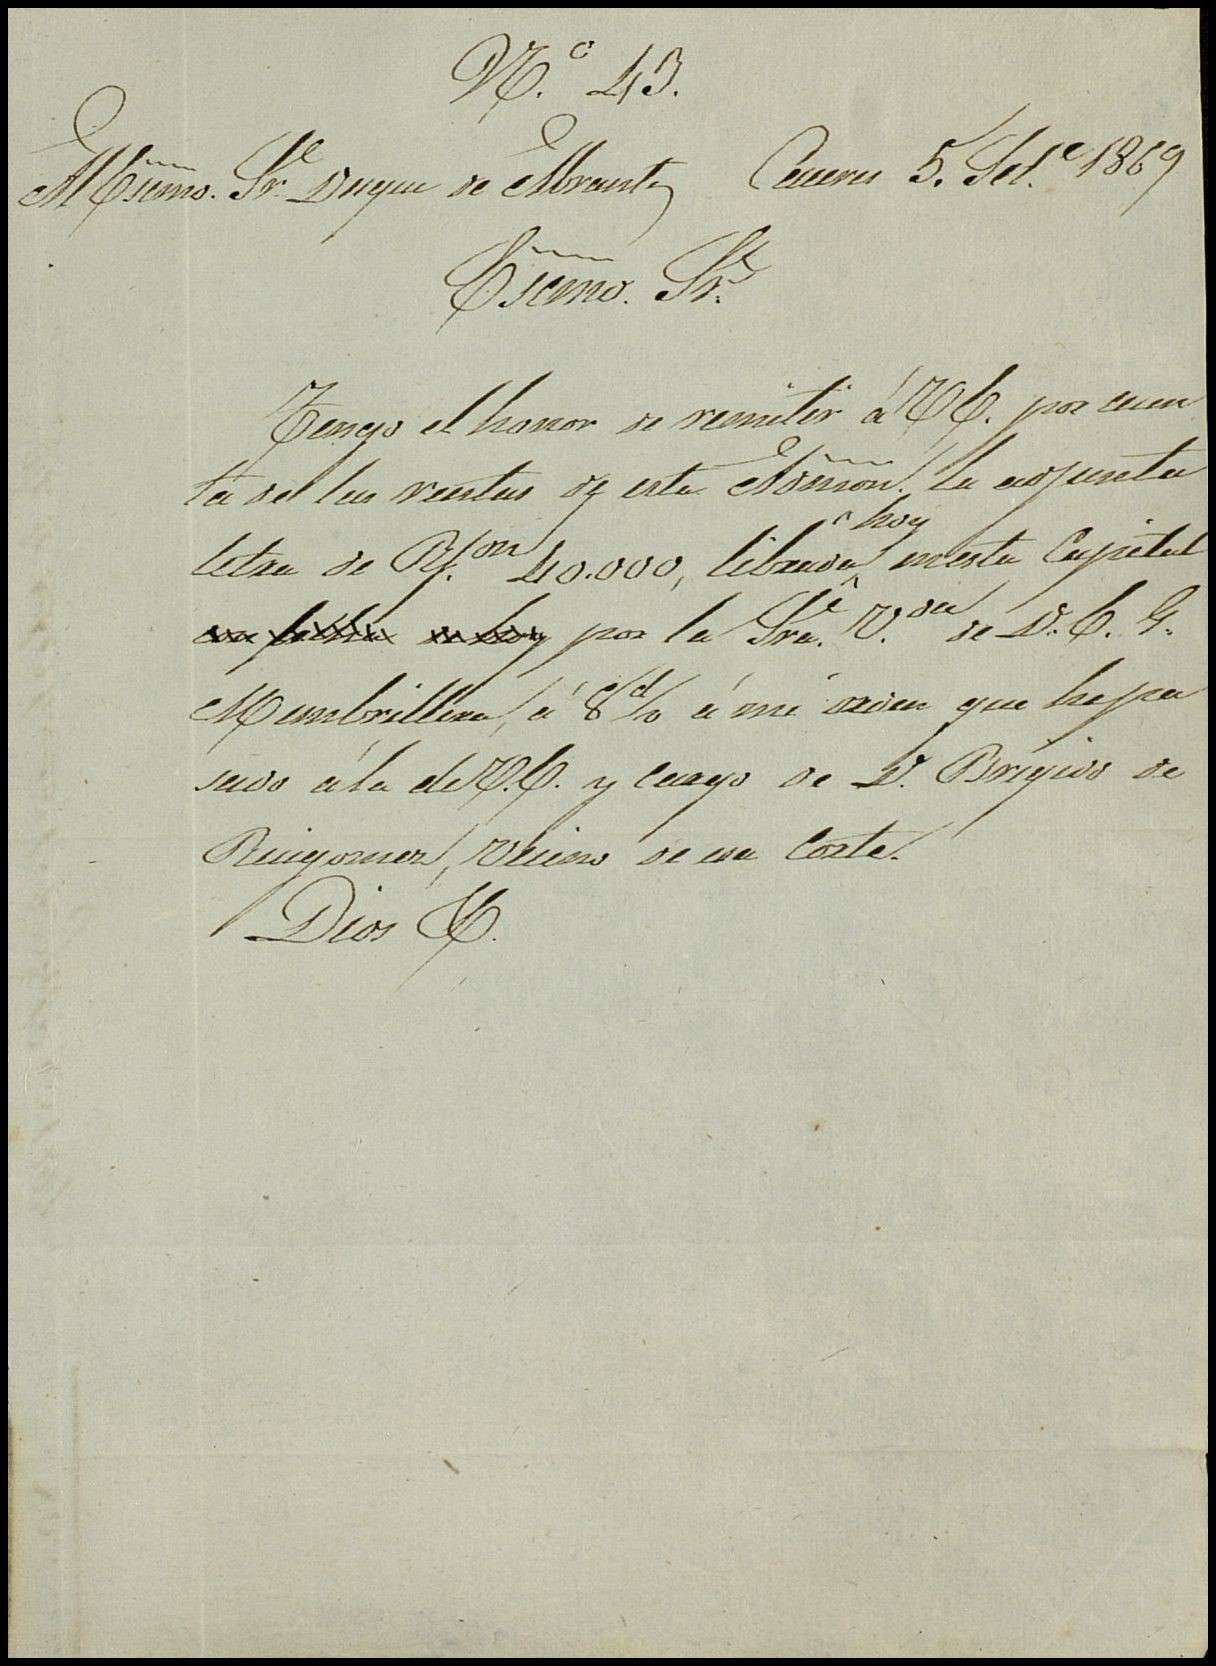 N.º 43.
Al Escmo. Sr. Duque de Abrantes Caceres 5. Set.e 1869
Escmo. Sr.
Tengo el honor de remitir á V. E. por cuen
ta de las rentas de esta Admon. la adjunta
hoy
letra de Rs. von 40.000, librada en esta Capital
por la Sra. V.da de D. E. G.
Membrillera, á 8 d/v á mi orden que he pa
sado á la de V. E. y cargo de D. Brigido de
Ruigomez, vecino de esa Corte.
Dios &.